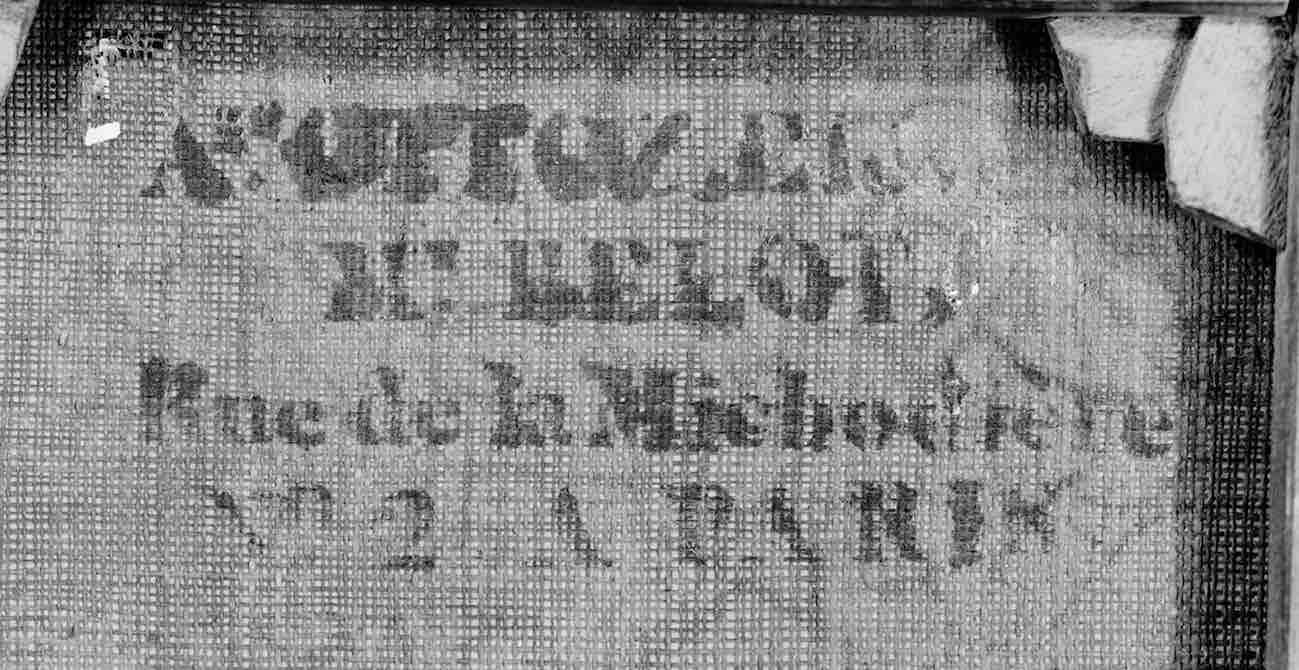 OTTOZ
BELOT,
Rue de la Michodière
N° 2 A PARIS